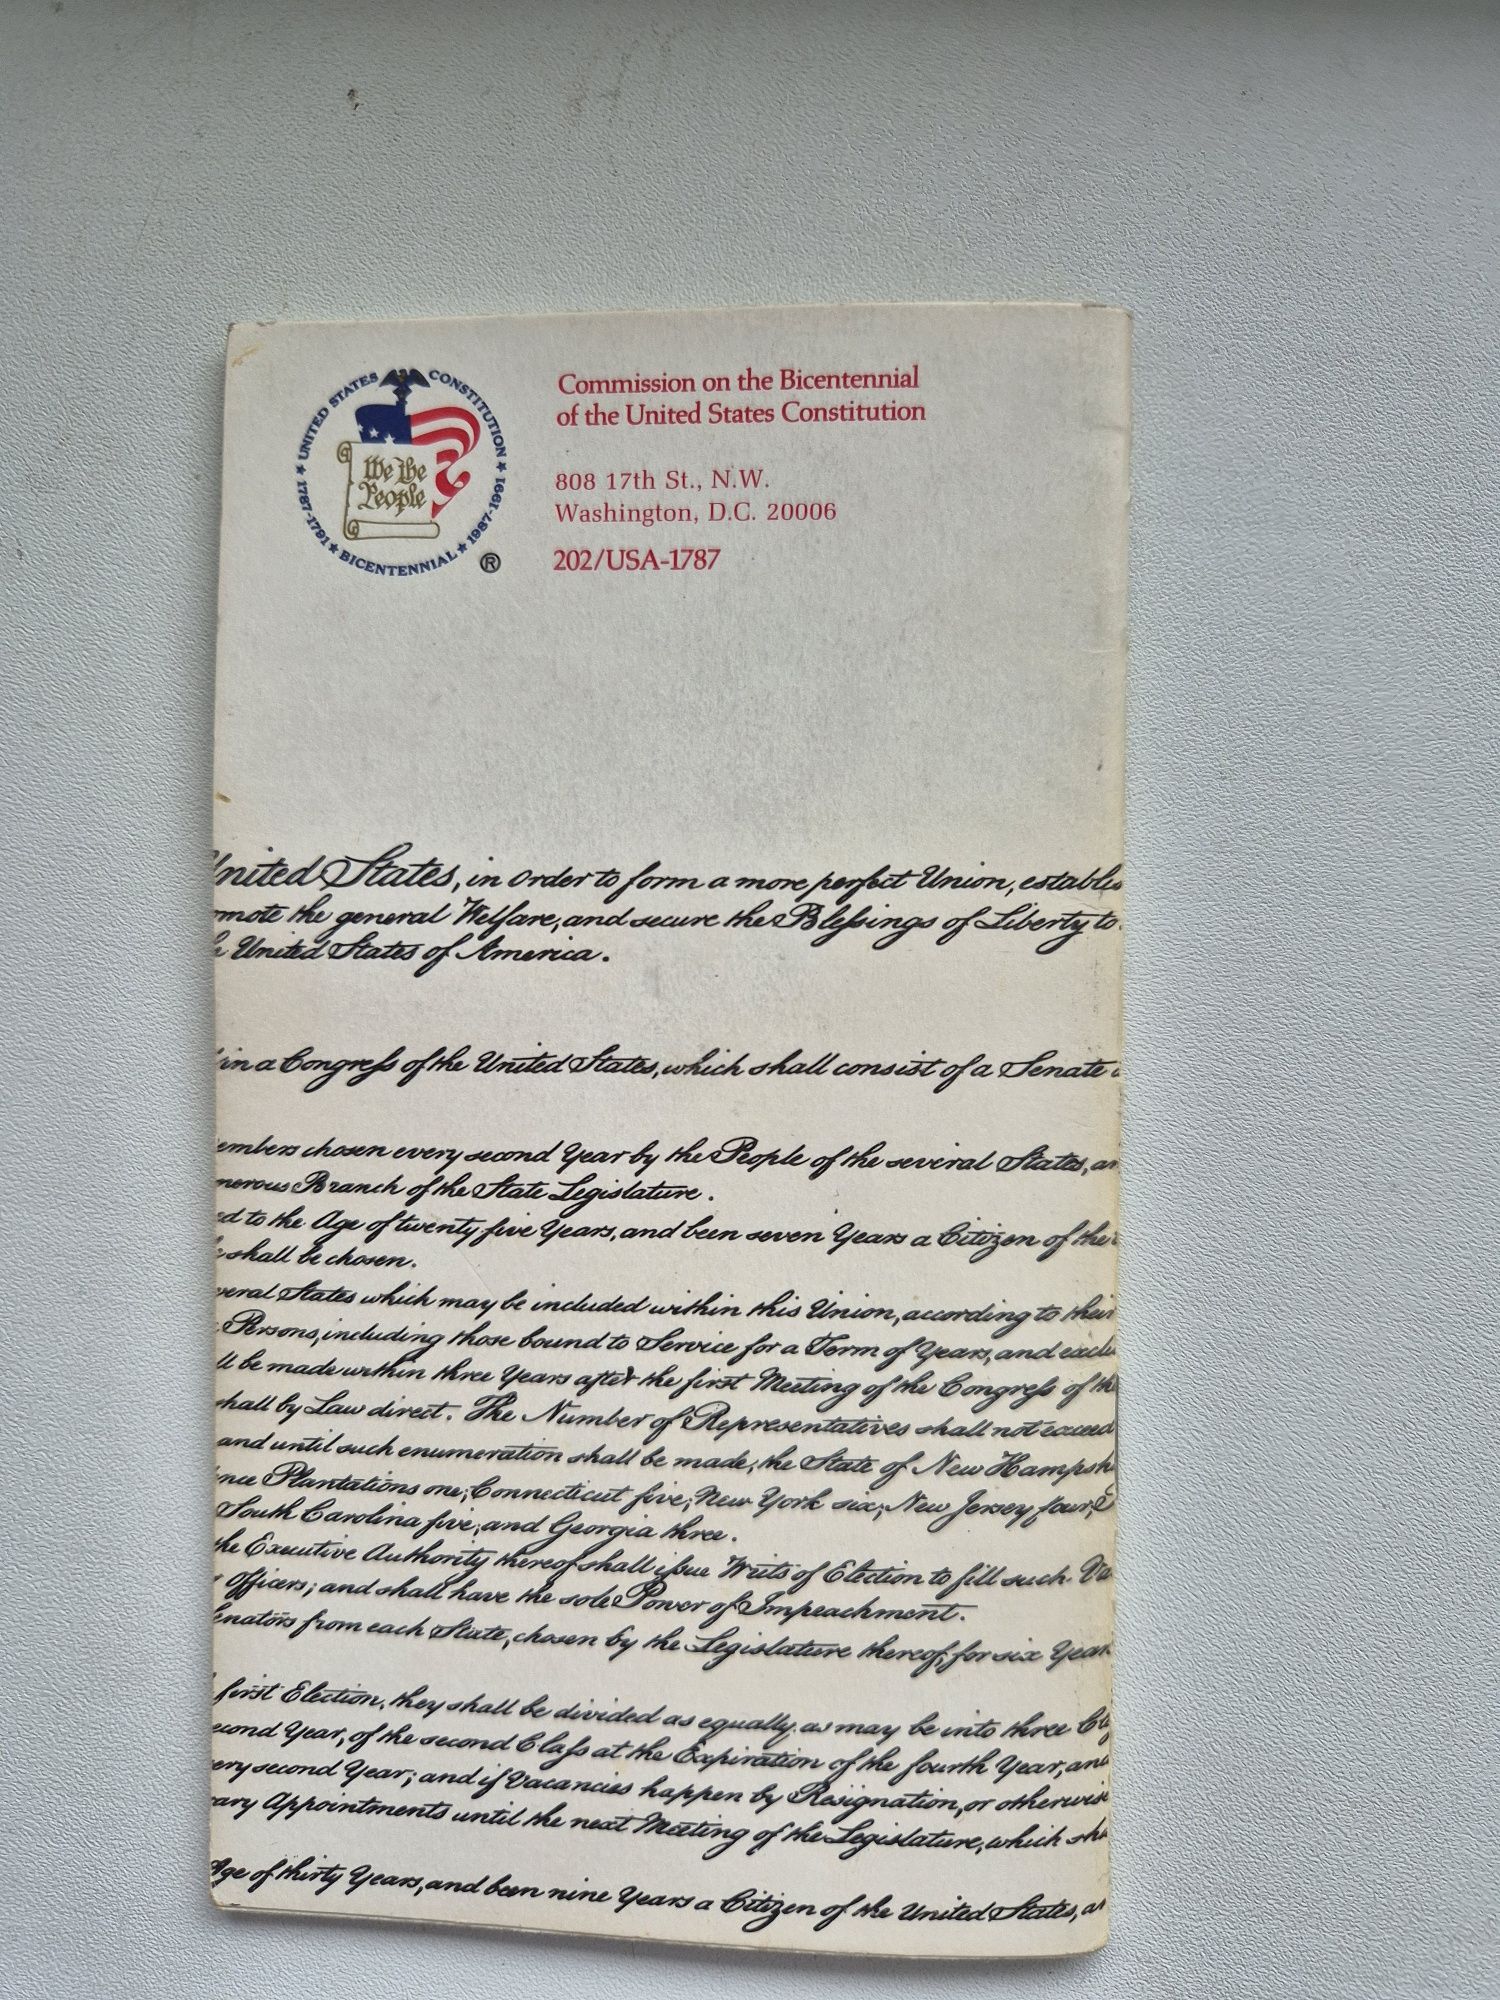 ★ UNITED STATES CONSTITUTION ★
1787-1791 ★ BICENTENNIAL ★ 1987-1991
We the
People
®
Commission on the Bicentennial
of the United States Constitution
808 17th St., N.W.
Washington, D.C. 20006
202/USA-1787
United States, in order to form a more perfect Union, establis
omote the general Welfare, and secure the Blessings of Liberty to
United States of America.
in a Congress of the United States, which shall consist of a Senate
embers chosen every second Year by the People of the several States, an
merous Branch of the State Legislature.
ed to the Age of twenty five Years, and been seven Years a Citizen of the
shall be chosen.
veral States which may be included within this Union, according to their
Persons, including those bound to Service for a Term of Years, and exclu
ll be made within three Years after the first Meeting of the Congress of th
shall by Law direct. The Number of Representatives shall not exceed
and until such enumeration shall be made, the State of New Hampsh
nce Plantations one, Connecticut five, New York six, New Jersey four,
South Carolina five, and Georgia three.
the Executive Authority thereof shall issue Writs of Election to fill such Va
Officers; and shall have the sole Power of Impeachment.
enators from each State, chosen by the Legislature thereof, for six Year
first Election, they shall be divided as equally as may be into three Cla
econd Year, of the second Class at the Expiration of the fourth Year, and
ery second Year; and if Vacancies happen by Resignation, or otherwise
rary Appointments until the next Meeting of the Legislature, which sha
Age of thirty Years, and been nine Years a Citizen of the United States, a